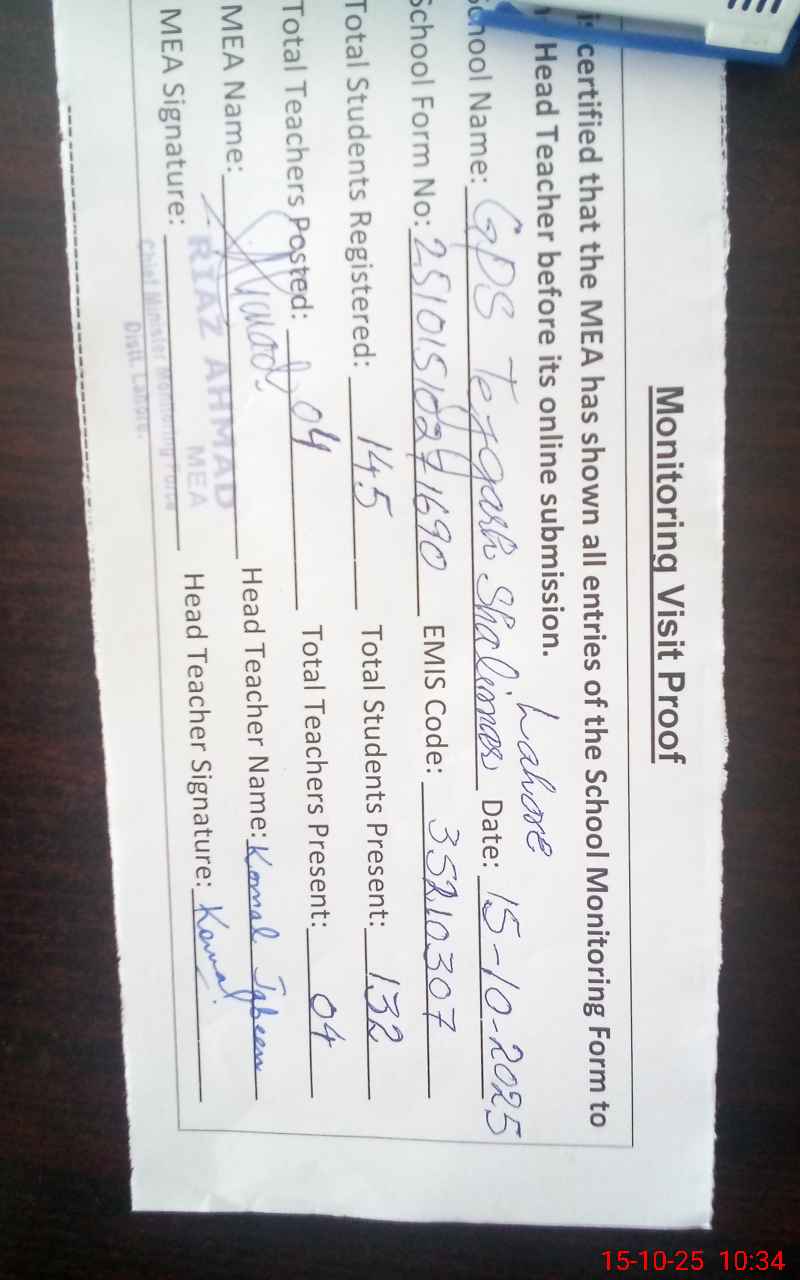 Monitoring Visit Proof
certified that the MEA has shown all entries of the School Monitoring Form to
Head Teacher before its online submission.
Lahore
School Name: GPS Tezgarh Shalimar Date: 15-10-2025
School Form No: EMIS Code: 35210307
Total Students Registered: 145 Total Students Present: 132
Total Teachers Posted: 04 Total Teachers Present: 04
MEA Name: RIAZ AHMAD Head Teacher Name: Komal
MEA
MEA Signature: Head Teacher Signature: Komal
Chief Minister Monitoring Force
Distt. Lahore.
15-10-25 10:34